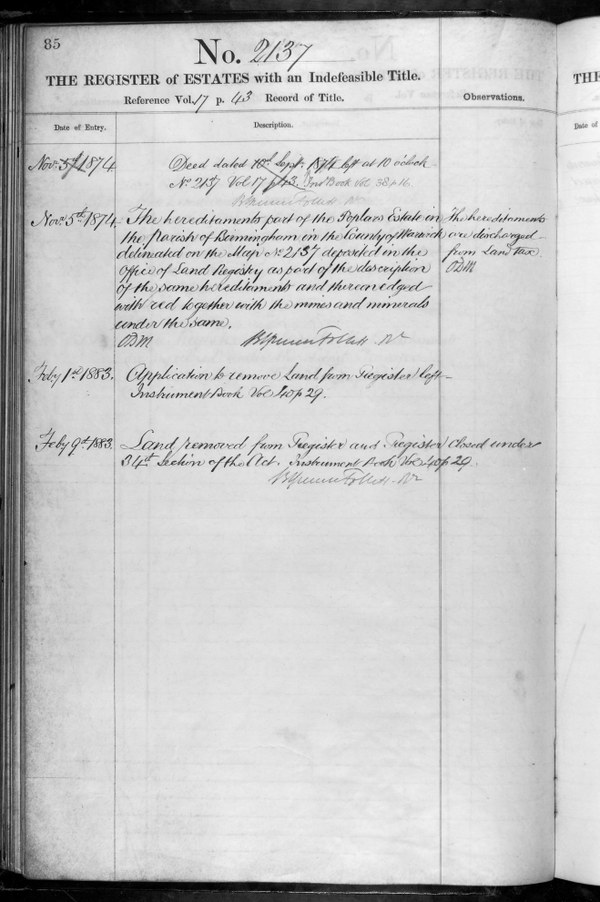 85
No. 2137
THE REGISTER of ESTATES with an Indefeasible Title.
Reference Vol. 17 p. 43 Record of Title.
Observations.
Date of Entry.
Description.
Novr 5th 1874
Deed dated Sept. 1874 left at 10 oclock
No 2137 Vol 17 p43. Inst Book Vol 38 p 16
Novr 5th 1874.
The hereditaments part of the Poplars Estate in
the parish of Birmingham in the County of Warwick
delineated on the Map No 2137 deposited in the
Office of Land Registry as part of the discription
of the same hereditaments and thereon edged
with red together with the mines and minerals
under the same.
ODM
The hereditaments
are discharged
from Land tax.
ODM
Brent Spencer Follett Rr
Feby 1st 1883.
Application to remove Land from Register left
Instrument Book Vol 40 p 29.
Feby 9th 1883.
Land removed from Register and Register closed under
34th Section of the Act. Instrument Book Vol 40 p 29.
THE
Date of